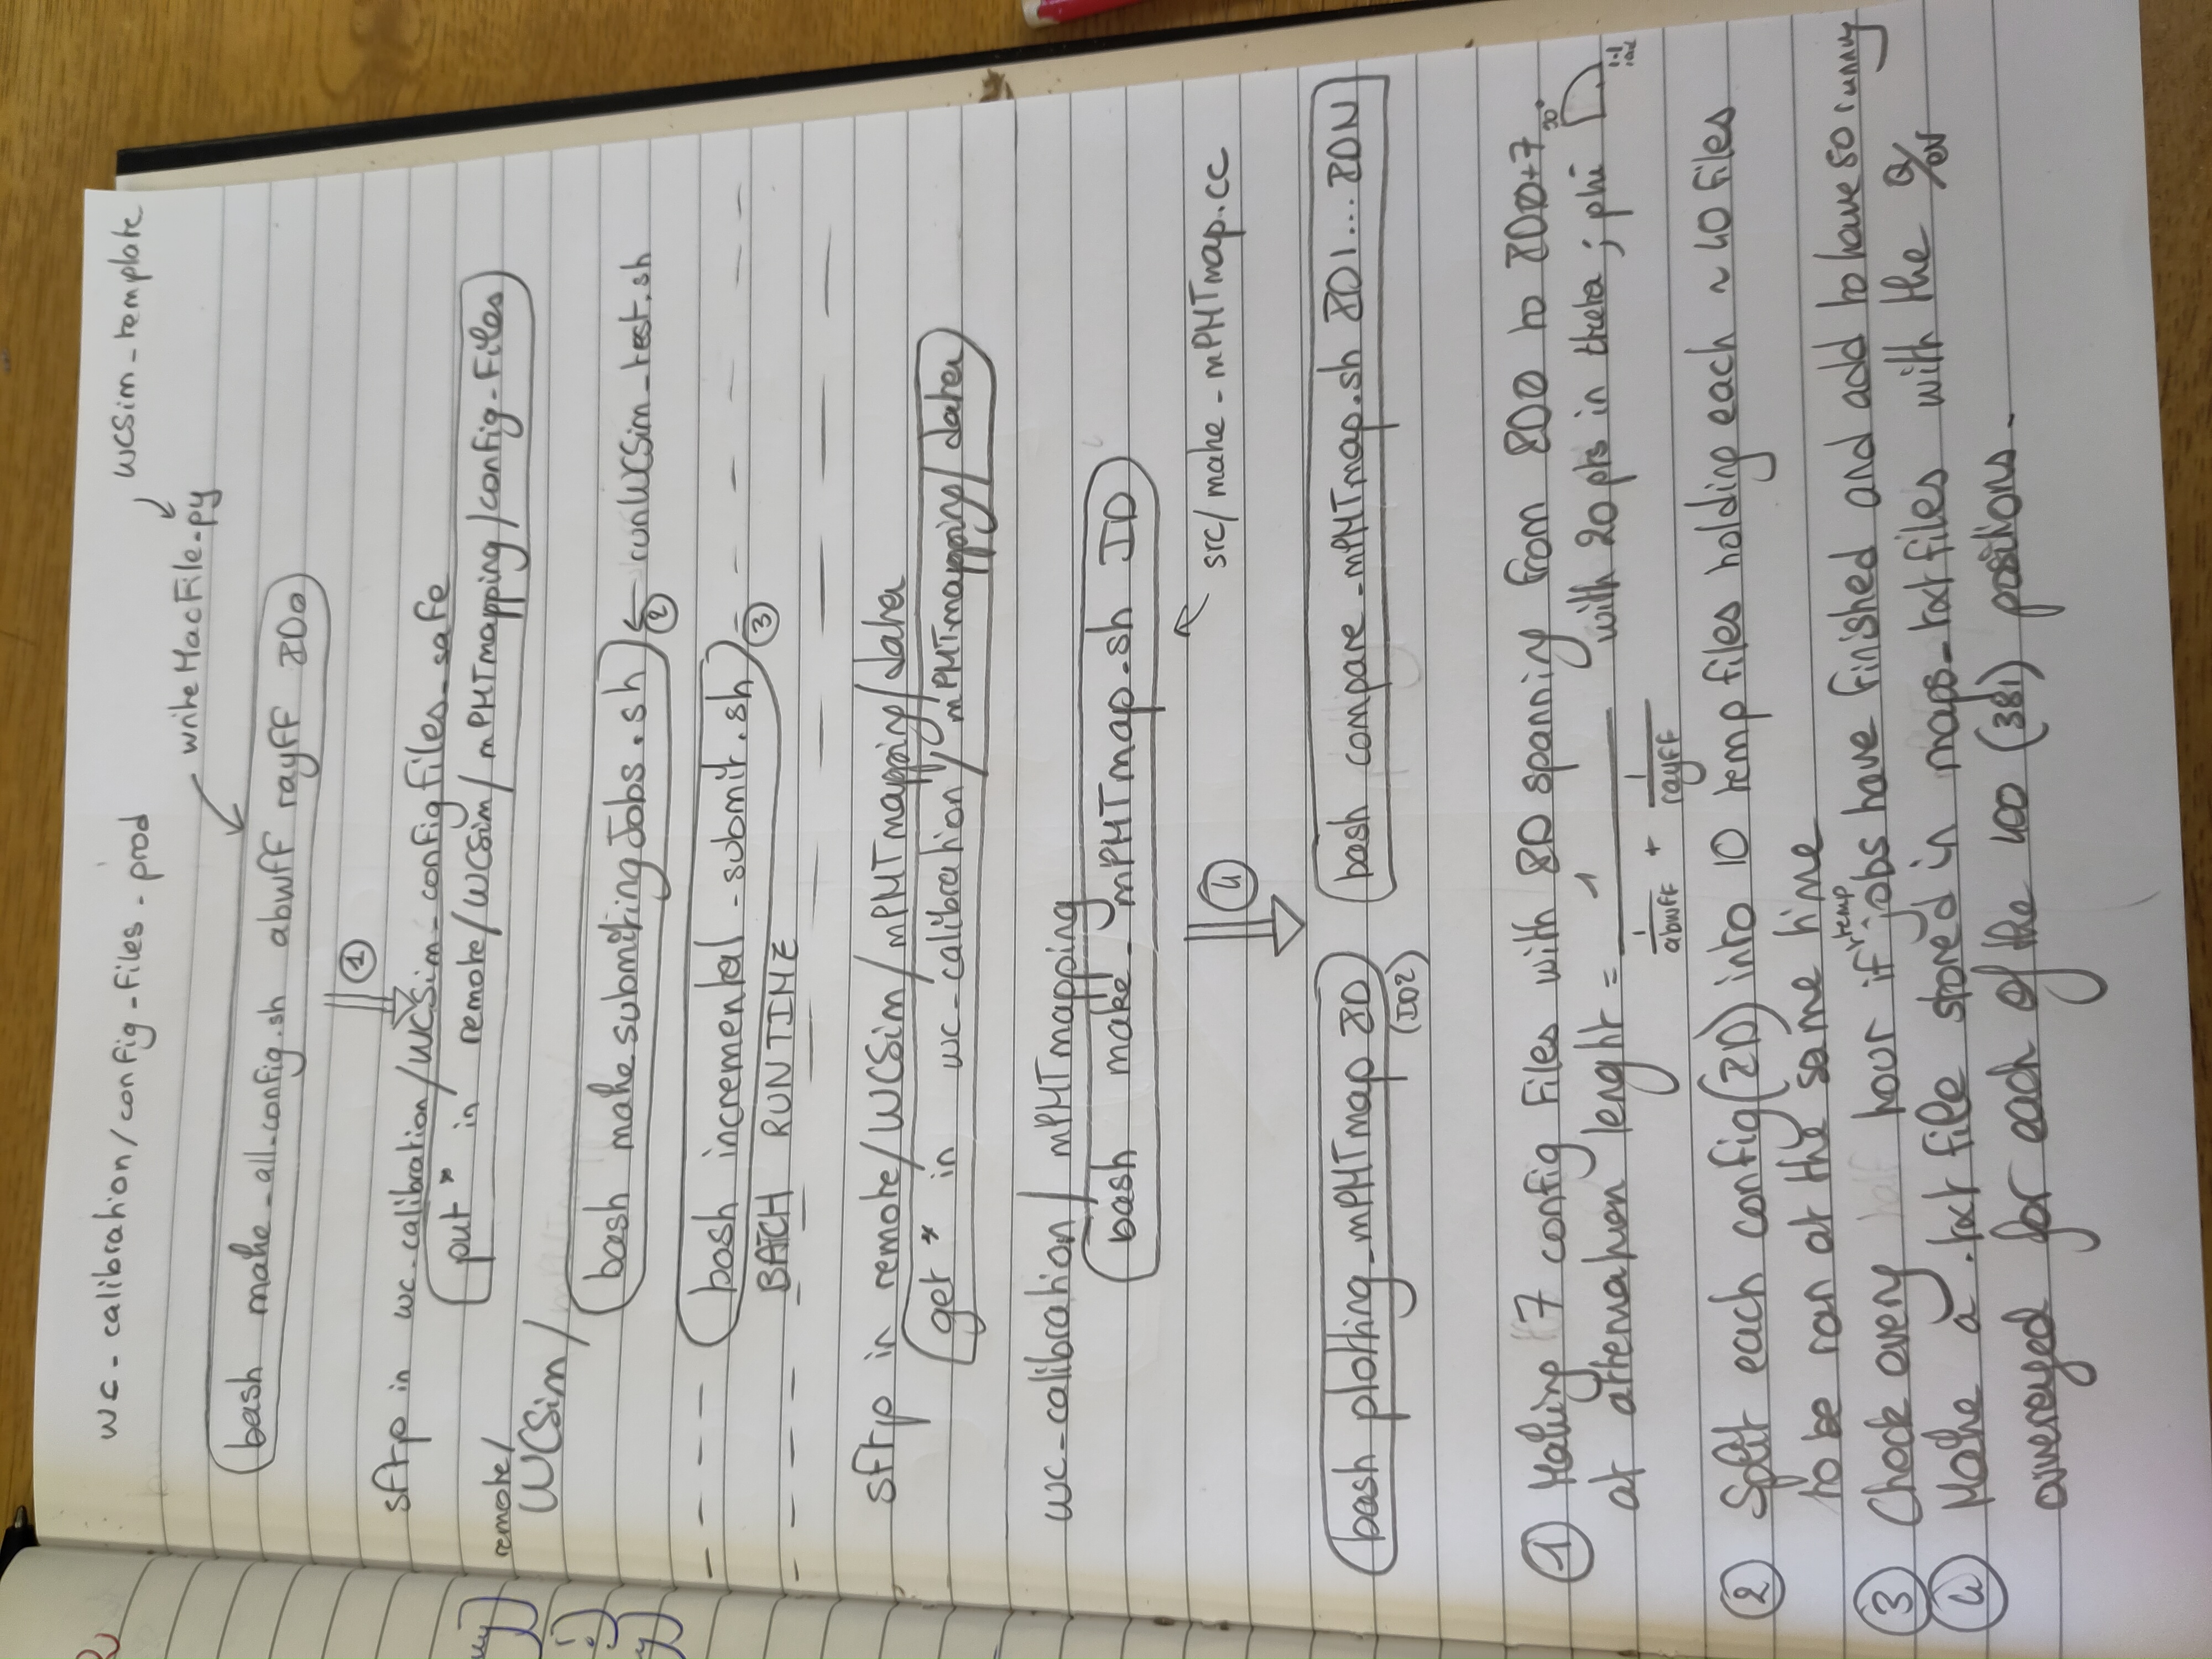 wc-calibration/config-files-prod
WCSim-template
writeMacFile.py
bash make-all-config.sh abwff rayff ID0
1
sftp in wc-calibration/WCSim-configfiles-safe
put * in remote/WCSim/mPMTmapping/config-files
remote/
WCSim/
bash makesubmitingJobs.sh
2
runWCSim-test.sh
bash incremental-submit.sh
3
BATCH RUNTIME
sftp in remote/WCSim/mPMTmapping/data
get * in wc-calibration/mPMTmapping/data
wc-calibration/mPMTmapping
bash make-mPMTmap.sh ID
src/make-mPMTmap.cc
4
bash plotting-mPMTmap ID
(ID2)
bash compare-mPMTmap.sh ID1...IDN
1 Making 7 config files with ID spanning from ID0 to ID0+7
at attenation lenght = 1 / (1/abwff + 1/rayff) with 20 pts in theta ; phi
90°
1.1 rad
2 Split each config(ID) into 10 temp files holding each ~ 40 files
to be ran at the same time
3 Check every hour if temp jobs have finished and add to have 80 running
4 Make a .txt file stored in maps-txtfiles with the Q/ev
avereyed for each of the 400 (381) positions.